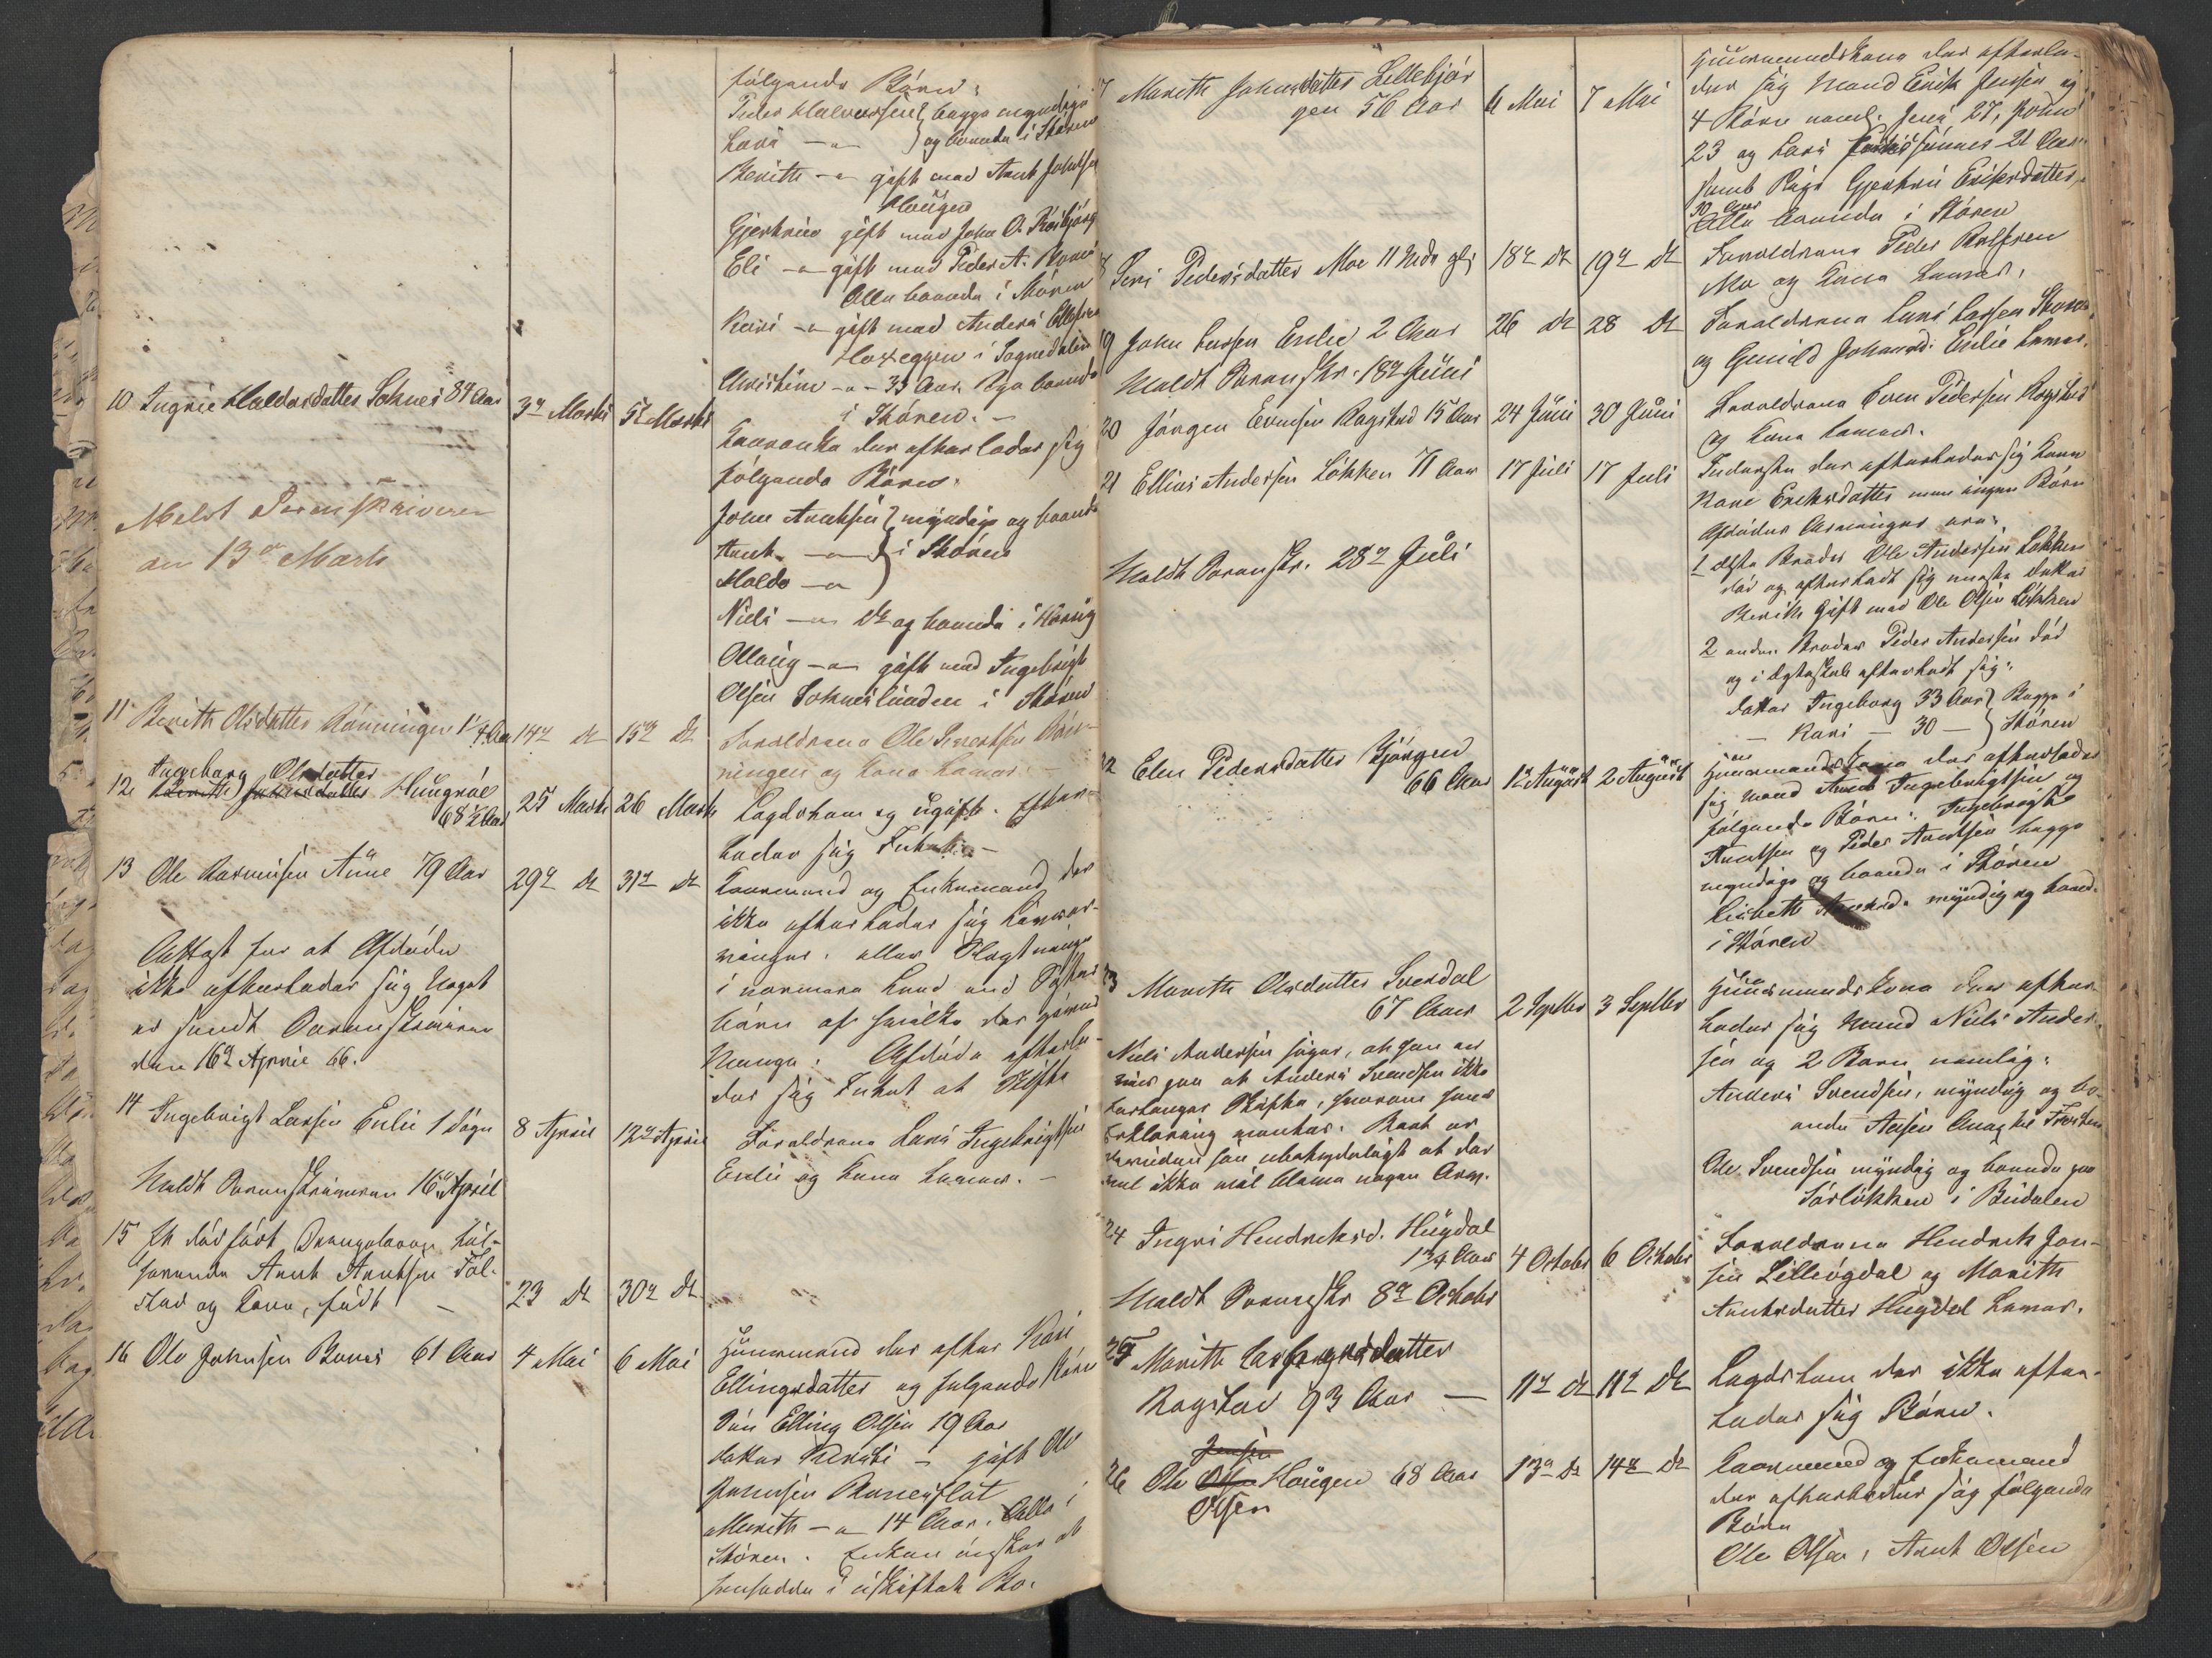 følgende Børn:
Peder Halvorsen } begge myndige
Lars — " — } og boende i Støren
Berith — " gift med Arnt Johnsen
Haugen
Gjertrue gift med John O. Rosbjørg
Eli — " gift med Peder A.
Alle boende i Støren
Kari — " gift med Anders Ellefsen
Hoxeggen i Sognedalen
Christine — " — 33 Aar. Og boende
i Støren. —
10 Ingrie Haldorsdatter Soknes 84 Aar
3die Marts
5te Marts
Kaarenke der efterlader sig
følgende Børn:
John Arntsen } myndige og boende
Arnt — " — } i Støren
Haldo — " }
Niels — " do og boende i Horrig
Ollaug — " — gift med Ingebrigt
Olsen Soknes lunden i Støren
Meldt Sorenskriveren
den 13de Marts
11 Berith Olsdatter Rønningen 1 1/4 Aar
14de do
15de do
Forældrene Ole Sivertsen Røn-
ningen og Kone Lever. —
12 Ingeborg Olsdatter
Huugrøe
68 1/2 Aar
25 Marts
26 Marts
Lægdslem og ugift. Efter-
lader sig Intet. —
13 Ole Rasmusen Aune 79 Aar
29de do
31te do
Kaarmand og Enkemand der
ikke efterlader sig Livsar-
vinger, eller Slægtninge
i nærmere Led end Søsken-
børn af hvilke der gives
Mange. Afdøde efterla-
der sig Intet at Skifte
Attest for at Afdøde
ikke efterlader sig Noget
er sendt Sorenskriveren
den 16de April 66.
14 Ingebrigt Larsen Enlie 1 Døgn
8 April
12te April
Forældrene Lars Ingebrigtsen
Enlie og Kone Lever. —
Meldt Sorenskriveren 16de April
15 Et dødfødt Drengebarn til-
hørende Arnt Arntsen Fol-
stad og Kone, født —
23 do
30te do
16 Ole Johnsen Bones 61 Aar
4 Mai
6 Mai
Huusmand der efter Kari
Ellingsdatter og følgende Børn
Søn Elling Olsen 19 Aar
datter Kersti — gift Ole
Jonsen Bonesflat
Marith — " 14 Aar. Alle i
Støren. Enken ønsker at
hensidde i uskiftet Bo.
17 Marith Johnsdatter Lillebjør
gen 56 Aar
4 Mai
7 Mai
Huusmandskone der efterla-
der sig Mand Erik Jensen og
4 Børn neml. Jens 27, John
23 og Lars Eriksønner 21 Aar
samt Pige Gjertrue Eriksdatter,
30 Aar
Alle boende i Støren
18 Siri Pedersdatter Moe 11 Uger gl.
18de do
19de do
Forældrene Peder Rolfsen
Mo og Kone Lever.
19 John Larsen Enlie 2 Aar
26 do
28 do
Forældrene Lars Larsen
og Gunild Johnsd. Enlie Lever.
Meldt Sorenskr. 18de Juni
20 Jørgen Evensen Rogstad 15 Aar
24 Juni
30 Juni
Forældrene Even Pedersen Rogstad
og Kone Lever.
21 Ellias Andersen Løkken 71 Aar
17 Juli
17 Juli
Inderste der efterlader sig Kone
Kari Eriksdatter men ingen Børn
Afdødes Arvinger ere:
1 ældste Broder Ole Andersen Løkken
død og efterladt sig næste Datter
Berith Gift med Ole Olsen Løkken
2 anden Broder Peder Andersen død
og i Ægteskab efterladt sig:
datter Ingeborg 33 Aar } Begge i
— Kari — 30 — } Støren
Meldt Sorenskr. 28de Juli
22 Elen Pedersdatter Bjørgen
66 Aar
1ste August
2 August
Huusmandskone der efterlader
sig Mand Arnt Ingebrigtsen og
følgende Børn: Ingebrigt
Arntsen og Peder Arntsen begge
myndige og boende i Støren
Lisbeth Arntsd. myndig og boend.
i Støren
23 Marith Olsdatter Sverdal
67 Aar
2 Septbr
3 Septbr
Huusmandskone der efter-
lader sig Mand Niels Ander-
sen og 2 Børn nemlig:
Anders Svendsen, myndig og bo-
ende Aasen
Ole Svendsen myndig og boende paa
Sørløkken i Budalen
Niels Andersen siger, at han er
vis paa at Anders Svendsen ikke
forlanger Skifte, hvorom hans
Erklæring ventes. Boet er
desuden saa ubetydeligt at der
vel ikke vil blive nogen Arv.
24 Ingri Hendriksd. Hugdal
1 3/4 Aar
4 October
6 October
Forældrene Hendrik Jon-
sen Lillehugdal og Marith
Arntsdatter Hugdal Lever.
Meldt Sorenskr 8de October
25 Marith
Rogstad 93 Aar —
11te do
11te do
Lægdslem der ikke efter-
lader sig Børn.
26 Ole Haugen 68 Aar
Olsen
13de do
14de do
Kaarmand og Enkemand
der efterlader sig følgende
Børn
Ole Olsen, Arnt Olsen